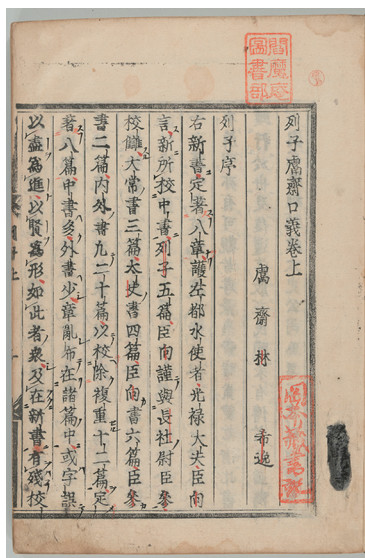 列子鬳齋口義卷上
鬳齋 林 希逸
列子序
右新書定著八章護左都水使者光祿大夫臣向
言所校中書列子五篇臣向謹與長社尉臣參
校讎太常書三篇太史書四篇臣向書六篇臣參
書二篇內外書凡二十篇以校除複重十二篇定
著八篇中書多外書少章亂布在諸篇中或字誤
以盡爲進以賢爲形如此者衆及在新書有殘校
閻魔庵圖書部